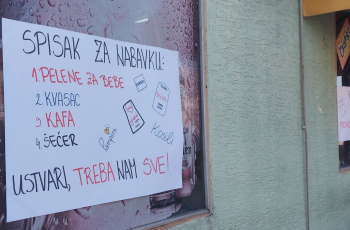 SPISAK ZA NABAVKU:
1. PELENE ZA BEBE
2. KVASAC
3. KAFA
4. ŠEĆER
Pampers
USTVARI, TREBA NAM SVE!